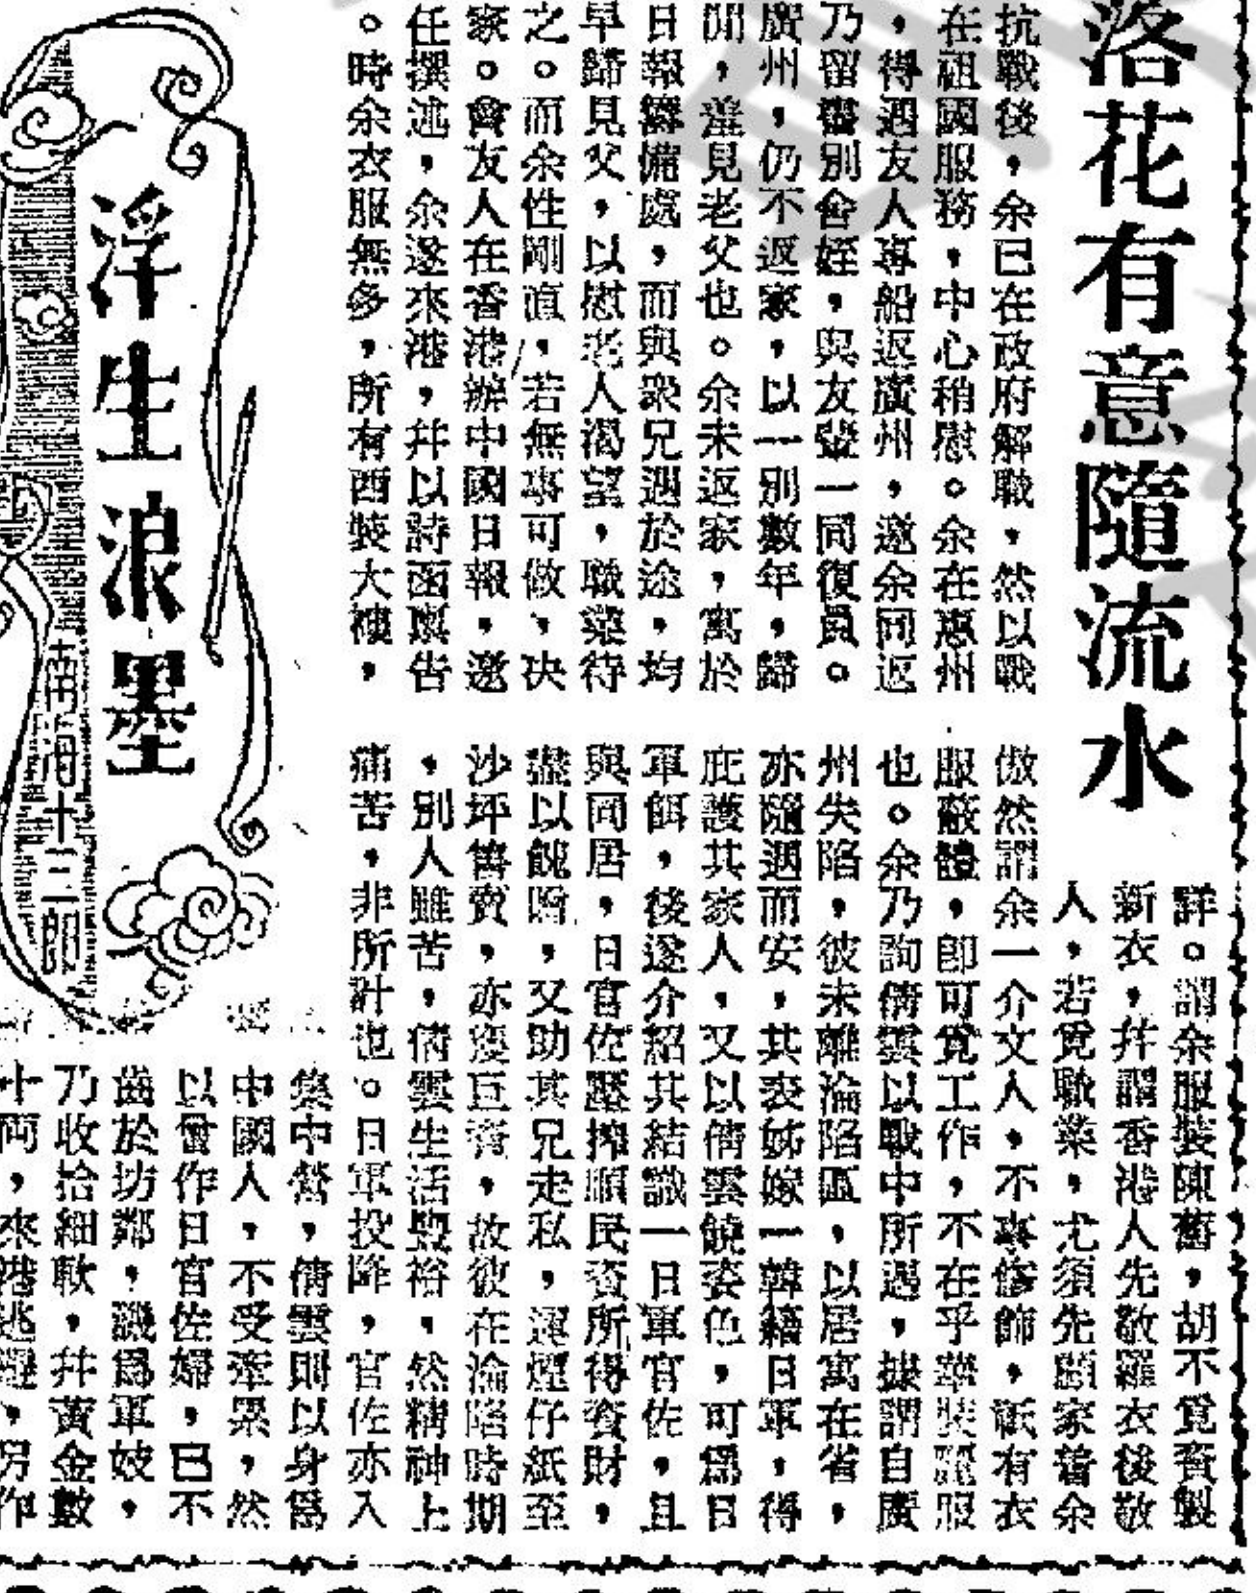 落花有意隨流水
浮生浪墨
南海十三郎
抗戰後，余已在政府解職，然以戰
在祖國服務，中心稍慰。余在惠州
，得遇友人專船返廣州，邀余同返
乃留書別舍姪，與友醫一同復員。
廣州，仍不返家，以一別數年，歸
閒，羞見老父也。余未返家，寓於
日報籌備處，而與衆兄遇於途，均
早歸見父，以慰老人渴望，職業待
之。而余性剛直，若無事可做，决
家。會友人在香港辦中國日報，邀
任撰述，余遂來港，幷以詩函稟告
。時余衣服無多，所有西裝大褸，
詳。謂余服裝陳舊，胡不覓資製
新衣，幷謂香港人先敬羅衣後敬
人，若覓職業，尤須先顧家着余
傲然謂余一介文人，不事修飾，祇有衣
服蔽體，卽可覓工作，不在乎華裝麗服
也。余乃詢倩雲以戰中所遇，據謂自廣
州失陷，彼未離淪陷區，以居寓在省，
亦隨遇而安，其表姊嫁一韓籍日軍，得
庇護其家人，又以倩雲饒姿色，可爲日
軍餌，後遂介紹其結識一日軍官佐，且
與同居，日官佐壓搾順民資所得資財，
盡以餽贈，又助其兄走私，運煙仔紙至
沙坪售賣，亦獲巨資，故彼在淪陷時期
，別人雖苦，倩雲生活豐裕，然精神上
痛苦，非所計也。日軍投降，官佐亦入
集中營，倩雲則以身爲
中國人，不受牽累，然
以曾作日官佐婦，已不
齒於坊鄰，譏爲軍妓，
乃收拾細軟，幷黃金數
十両，來港逃避，另作